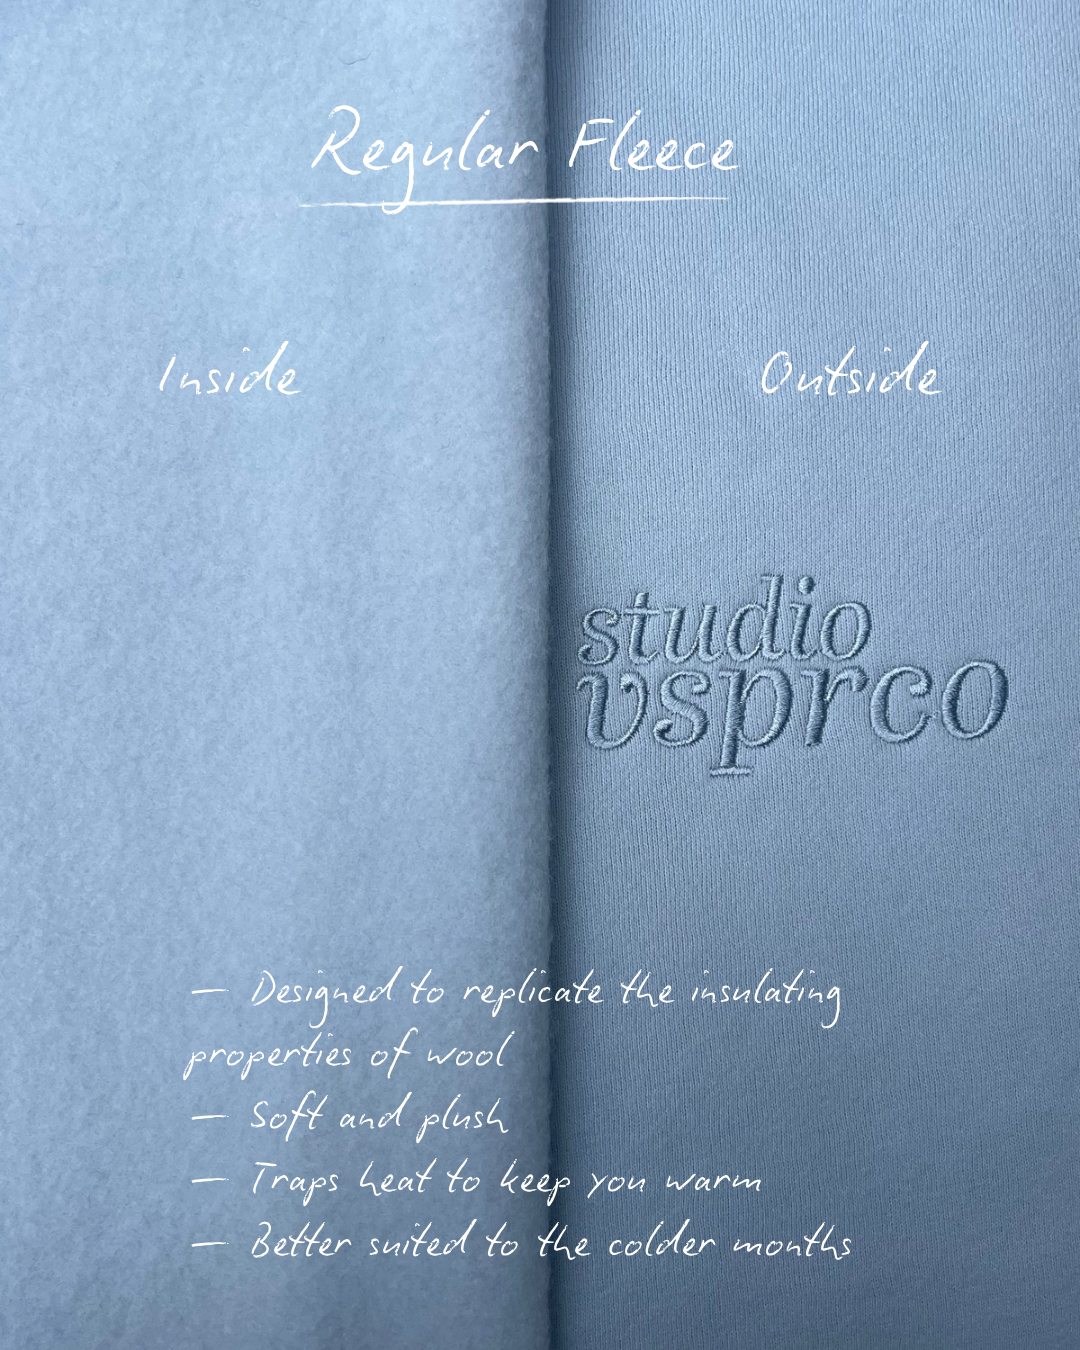 Regular Fleece
Inside
Outside
studio
vsprco
— Designed to replicate the insulating
properties of wool
— Soft and plush
— Traps heat to keep you warm
— Better suited to the colder months